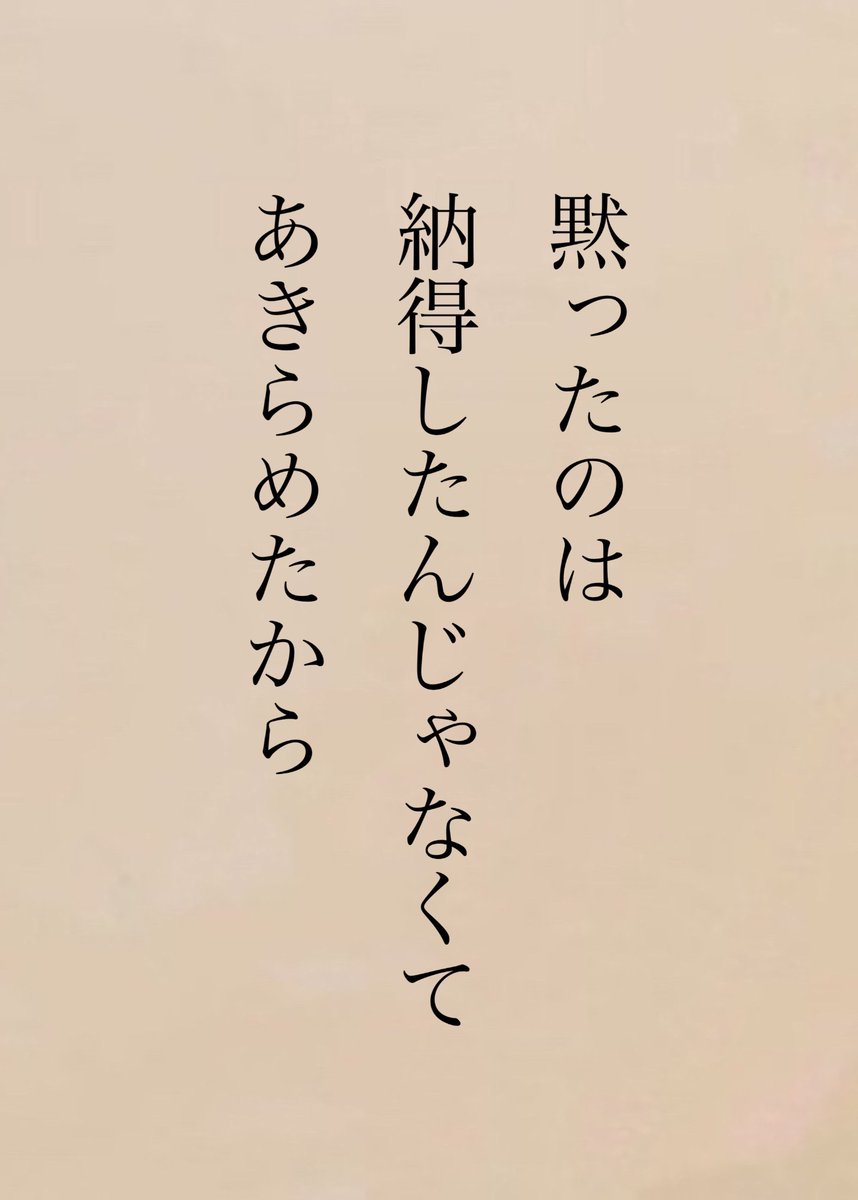 黙ったのは
納得したんじゃなくて
あきらめたから